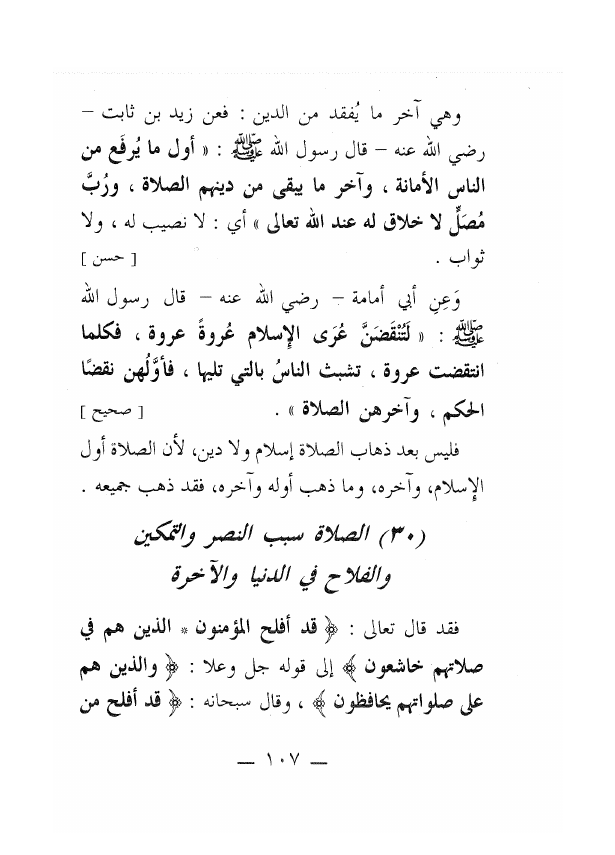 وهي آخر ما يُفقد من الدين : فعن زيد بن ثابت –
رضي الله عنه – قال رسول الله ﷺ : « أول ما يُرفَع من
الناس الأمانة ، وآخر ما يبقى من دينهم الصلاة ، ورُبَّ
مُصَلٍّ لا خلاق له عند الله تعالى » أي : لا نصيب له ، ولا
ثواب . [ حسن ]
وَعِنِ أبي أمامة – رضي الله عنه – قال رسول الله
ﷺ : « لَتُنْقَضَنَّ عُرَى الإسلام عُروةً عروة ، فكلما
انتقضت عروة ، تشبث الناسُ بالتي تليها ، فأوَّلُهن نقضًا
الحكم ، وآخرهن الصلاة » . [ صحيح ]
فليس بعد ذهاب الصلاة إسلام ولا دين، لأن الصلاة أول
الإسلام، وآخره، وما ذهب أوله وآخره، فقد ذهب جميعه .
(٣٠) الصلاة سبب النصر والتمكين
والفلاح في الدنيا والآخرة
فقد قال تعالى : ﴿ قد أفلح المؤمنون * الذين هم في
صلاتهم خاشعون ﴾ إلى قوله جل وعلا : ﴿ والذين هم
على صلواتهم يحافظون ﴾ ، وقال سبحانه : ﴿ قد أفلح من
— ١٠٧ —